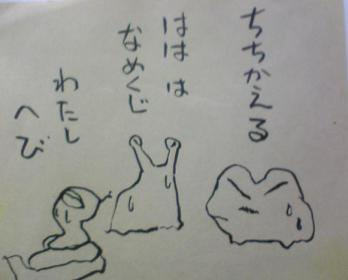 ちちかえる
ははは
なめくじ
わたし
へび